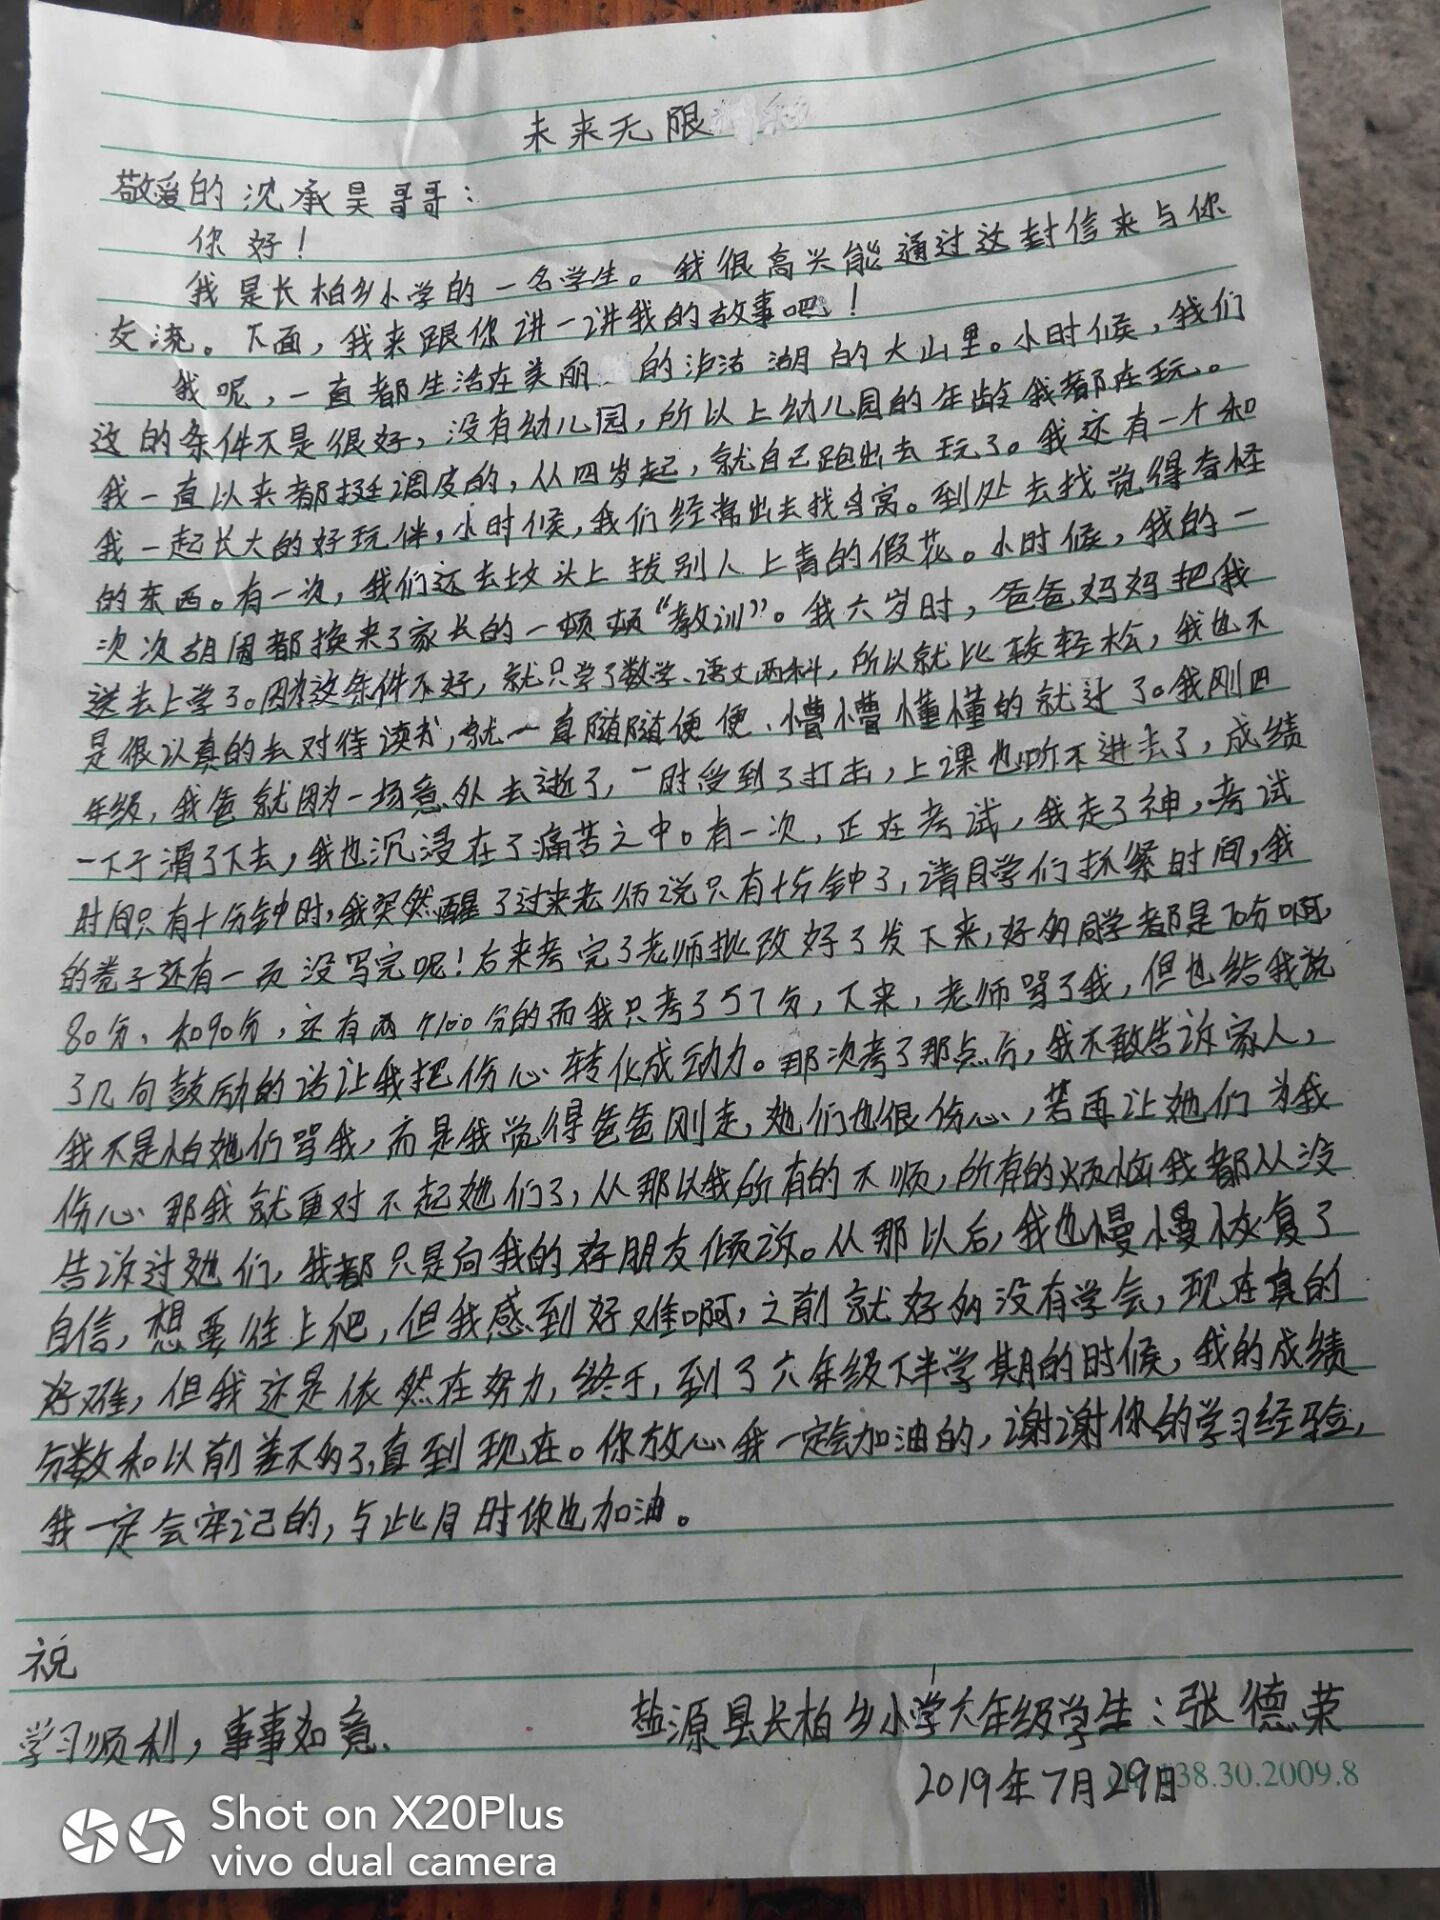 未来无限
敬爱的沈承昊哥哥：
你好！
我是长柏乡小学的一名学生。我很高兴能通过这封信来与你
交流。下面，我来跟你讲一讲我的故事吧！
我呢，一直都生活在美丽的泸沽湖的大山里。小时候，我们
这的条件不是很好，没有幼儿园，所以上幼儿园的年龄我都在玩。
我一直以来都挺调皮的，从四岁起，就自己跑出去玩了。我还有一个和
我一起长大的好玩伴，小时候，我们经常出去找鸟窝。到处去找觉得奇怪
的东西。有一次，我们还去坟头上拔别人上青的假花。小时候，我的一
次次胡闹都换来了家长的一顿顿“教训”。我六岁时，爸爸妈妈把我
送去上学了。因为这条件不好，就只学了数学、语文两科，所以就比较轻松，我也不
是很认真的去对待读书，就一直随随便便、懵懵懂懂的就过了。我刚四
年级，我爸就因为一场意外去逝了，一时受到了打击，上课也听不进去了，成绩
一下子滑了下去，我也沉浸在了痛苦之中。有一次，正在考试，我走了神，考试
时间只有十分钟时，我突然醒了过来老师说只有十分钟了，请同学们抓紧时间，我
的卷子还有一页没写完呢！后来考完了老师批改好了发下来，好多同学都是70分啊，
80分、和90分，还有两个100分的而我只考了57分，下来，老师骂了我，但也给我说
了几句鼓励的话让我把伤心转化成动力。那次考了那点分，我不敢告诉家人，
我不是怕她们骂我，而是我觉得爸爸刚走，她们也很伤心，若再让她们为我
伤心那我就更对不起她们了，从那以我所有的不顺，所有的烦恼我都从没
告诉过她们，我都只是向我的好朋友倾诉。从那以后，我也慢慢恢复了
自信，想要往上爬，但我感到好难啊，之前就好多没有学会，现在真的
好难，但我还是依然在努力，终于，到了六年级下半学期的时候，我的成绩
分数和以前差不多了，直到现在。你放心我一定会加油的，谢谢你的学习经验，
我一定会牢记的，与此同时你也加油。
祝
学习顺利，事事如意、
盐源县长柏乡小学六年级学生：张德荣
2019年7月29日
38.30.2009.8
Shot on X20Plus
vivo dual camera